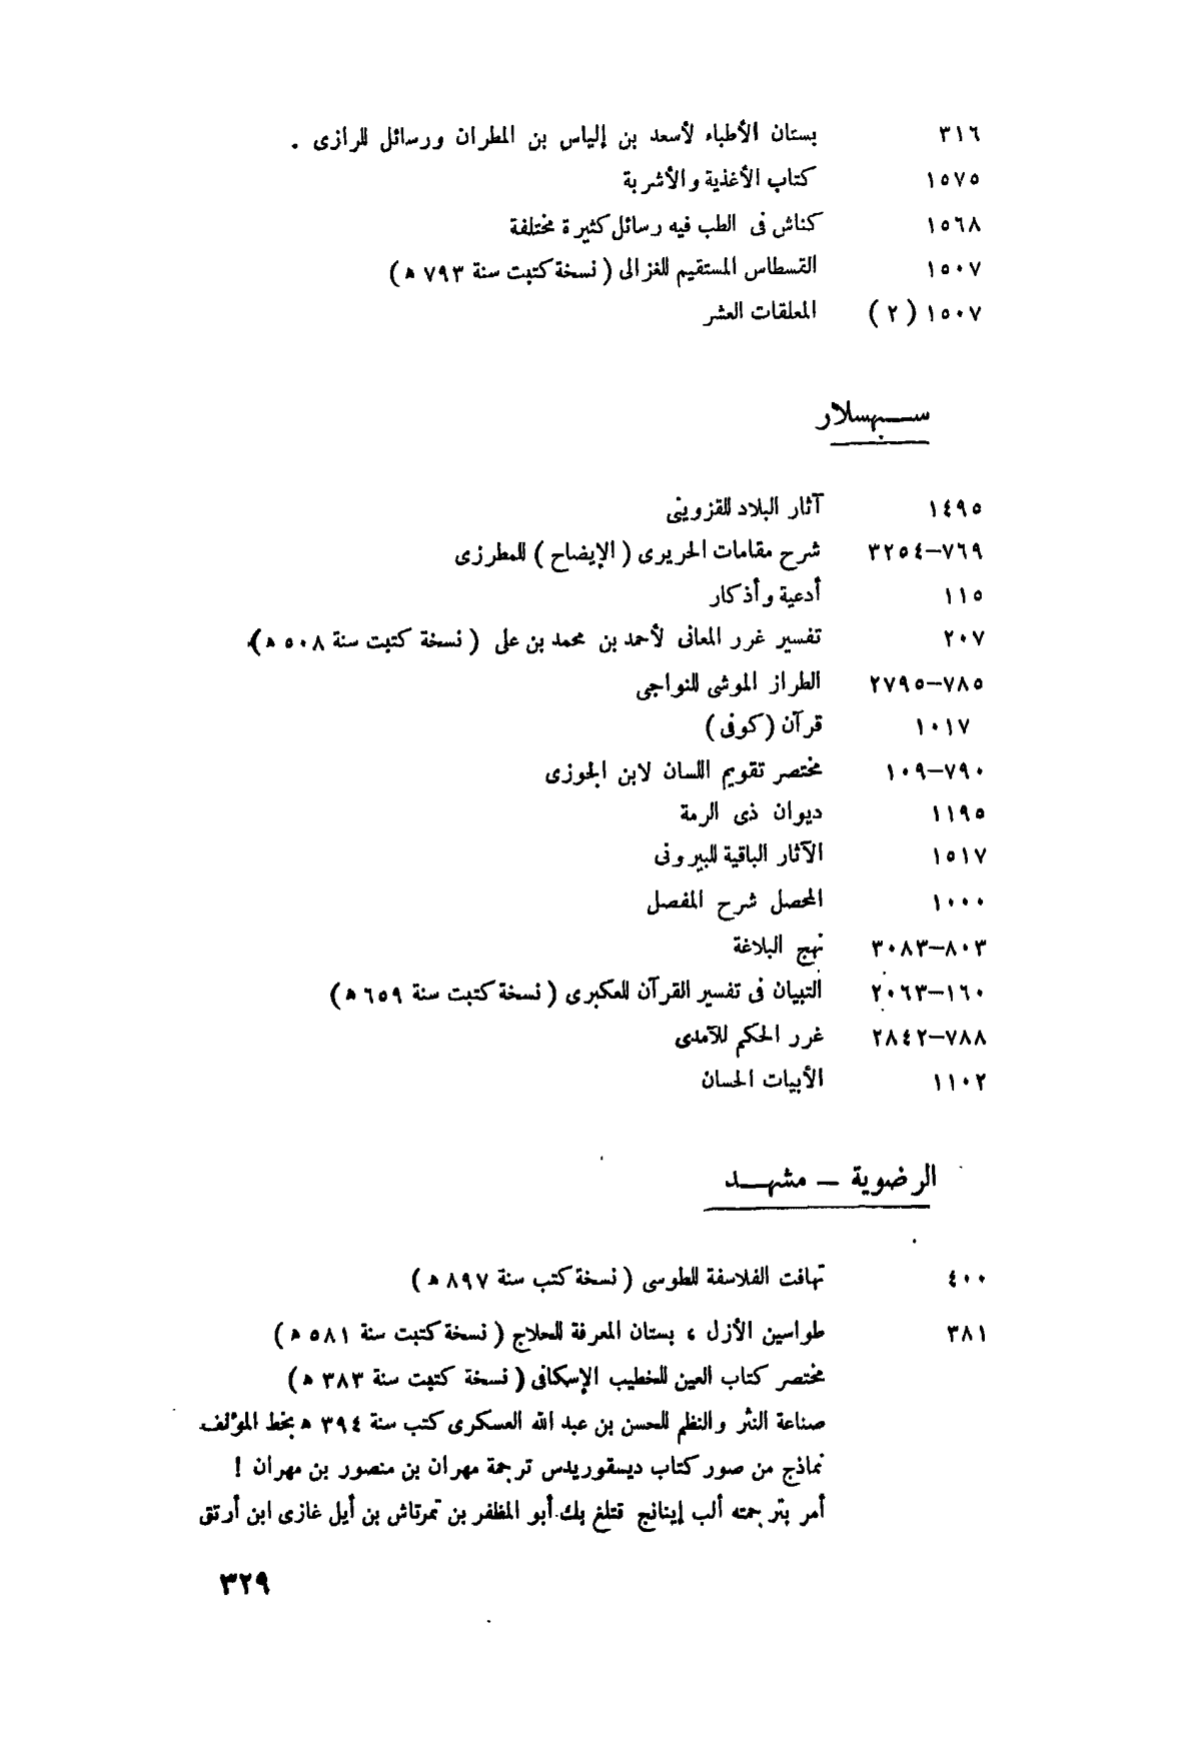 ٣١٦ بستان الأطباء لأسعد بن إلياس بن المطران ورسائل للرازى .
١٥٧٥ كتاب الأغذية والأشربة
١٥٦٨ كناش فى الطب فيه رسائل كثيرة مختلفة
١٥٠٧ القسطاس المستقيم للغزالى ( نسخة كتبت سنة ٧٩٣ ه )
١٥٠٧ ( ٢ ) المعلقات العشر
سپهسلار
١٤٩٥ آثار البلاد للقزوينى
٧٦٩–٣٢٥٤ شرح مقامات الحريرى ( الإيضاح ) للمطرزى
١١٥ أدعية وأذكار
٢٠٧ تفسير غرر المعانى لأحمد بن محمد بن على ( نسخة كتبت سنة ٥٠٨ ه )
٧٨٥–٢٧٩٥ الطراز الموشى للنواجى
١٠١٧ قرآن ( كوفى )
٧٩٠–١٠٩ مختصر تقويم اللسان لابن الجوزى
١١٩٥ ديوان ذى الرمة
١٥١٧ الآثار الباقية للبيرونى
١٠٠٠ المحصل شرح المفصل
٨٠٣–٣٠٨٣ نهج البلاغة
١٦٠–٢٠٦٣ التبيان فى تفسير القرآن للعكبرى ( نسخة كتبت سنة ٦٥٩ ه )
٧٨٨–٢٨٤٢ غرر الحكم للآمدى
١١٠٢ الأبيات الحسان
الرضوية – مشهد
٤٠٠ تهافت الفلاسفة للطوسى ( نسخة كتب سنة ٨٩٧ ه )
٣٨١ طواسين الأزل ، بستان المعرفة للحلاج ( نسخة كتبت سنة ٥٨١ ه )
مختصر كتاب العين للخطيب الإسكافى ( نسخة كتبت سنة ٣٨٣ ه )
صناعة النثر والنظم للحسن بن عبد الله العسكرى كتب سنة ٣٩٤ ه بخط المؤلف
نماذج من صور كتاب ديسقوريدس ترجمة مهران بن منصور بن مهران !
أمر بترجمته ألب إينانج قتلغ بك أبو المظفر بن تمرتاش بن أيل غازى ابن أرتق
٣٢٩